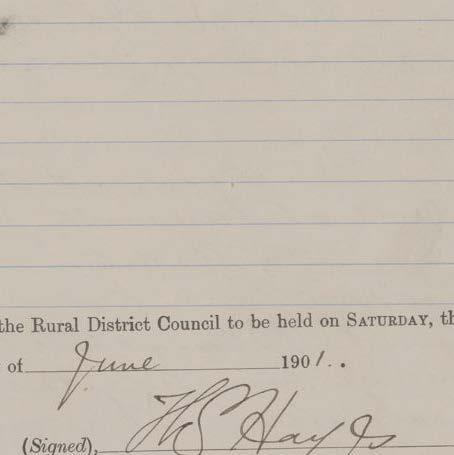 the Rural District Council to be held on SATURDAY, th
of June 1901..
(Signed),